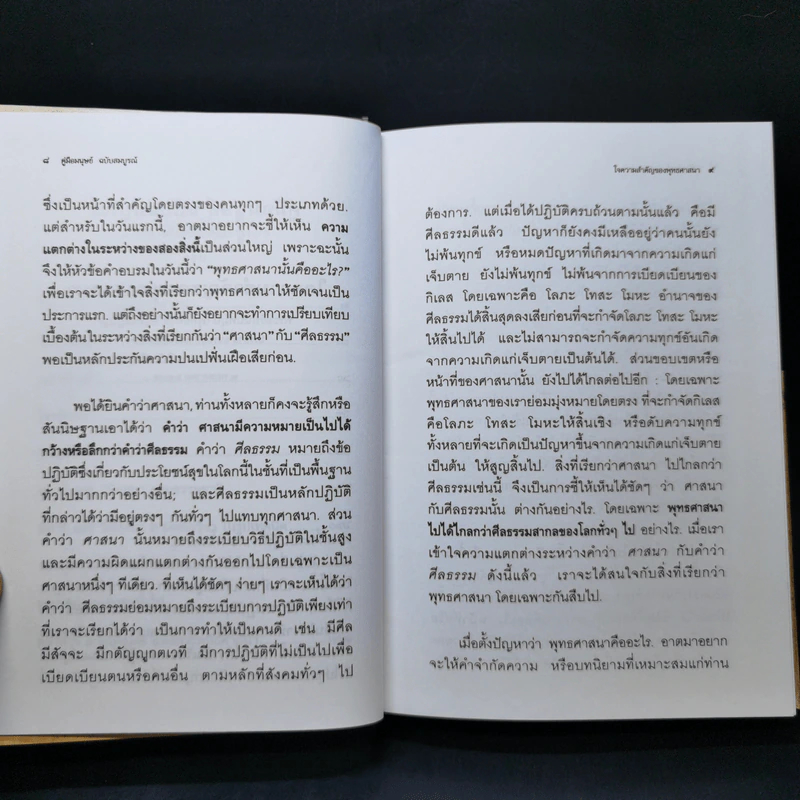 ๘ คู่มือมนุษย์ ฉบับสมบูรณ์
ซึ่งเป็นหน้าที่สำคัญโดยตรงของคนทุกๆ ประเภทด้วย.
แต่สำหรับในวันแรกนี้, อาตมาอยากจะชี้ให้เห็น ความ
แตกต่างในระหว่างของสองสิ่งนี้เป็นส่วนใหญ่ เพราะฉะนั้น
จึงให้หัวข้อคำอบรมในวันนี้ว่า “พุทธศาสนานั้นคืออะไร?”
เพื่อเราจะได้เข้าใจสิ่งที่เรียกว่าพุทธศาสนาให้ชัดเจนเป็น
ประการแรก. แต่ถึงอย่างนั้นก็ยังอยากจะทำการเปรียบเทียบ
เบื้องต้นในระหว่างสิ่งที่เรียกกันว่า “ศาสนา” กับ “ศีลธรรม”
พอเป็นหลักประกันความปนเปฟั่นเฝือเสียก่อน.
พอได้ยินคำว่าศาสนา, ท่านทั้งหลายก็คงจะรู้สึกหรือ
สันนิษฐานเอาได้ว่า คำว่า ศาสนามีความหมายเป็นไปได้
กว้างหรือลึกกว่าคำว่าศีลธรรม คำว่า ศีลธรรม หมายถึงข้อ
ปฏิบัติซึ่งเกี่ยวกับประโยชน์สุขในโลกนี้ในชั้นที่เป็นพื้นฐาน
ทั่วไปมากกว่าอย่างอื่น; และศีลธรรมเป็นหลักปฏิบัติ
ที่กล่าวได้ว่ามีอยู่ตรงๆ กันทั่วๆ ไปแทบทุกศาสนา. ส่วน
คำว่า ศาสนา นั้นหมายถึงระเบียบวิธีปฏิบัติในชั้นสูง
และมีความผิดแผกแตกต่างกันออกไปโดยเฉพาะเป็น
ศาสนาหนึ่งๆ ทีเดียว. ที่เห็นได้ชัดๆ ง่ายๆ เราจะเห็นได้ว่า
คำว่า ศีลธรรมย่อมหมายถึงระเบียบการปฏิบัติเพียงเท่า
ที่เราจะเรียกได้ว่า เป็นการทำให้เป็นคนดี เช่น มีศีล
มีสัจจะ มีกตัญญูกตเวที มีการปฏิบัติที่ไม่เป็นไปเพื่อ
เบียดเบียนตนหรือคนอื่น ตามหลักที่สังคมทั่วๆ ไป
ใจความสำคัญของพุทธศาสนา ๙
ต้องการ. แต่เมื่อได้ปฏิบัติครบถ้วนตามนั้นแล้ว คือมี
ศีลธรรมดีแล้ว ปัญหาก็ยังคงมีเหลืออยู่ว่าคนนั้นยัง
ไม่พ้นทุกข์ หรือหมดปัญหาที่เกิดมาจากความเกิดแก่
เจ็บตาย ยังไม่พ้นทุกข์ ไม่พ้นจากการเบียดเบียนของ
กิเลส โดยเฉพาะคือ โลภะ โทสะ โมหะ อำนาจของ
ศีลธรรมได้สิ้นสุดลงเสียก่อนที่จะกำจัดโลภะ โทสะ โมหะ
ให้สิ้นไปได้ และไม่สามารถจะกำจัดความทุกข์อันเกิด
จากความเกิดแก่เจ็บตายเป็นต้นได้. ส่วนขอบเขตหรือ
หน้าที่ของศาสนานั้น ยังไปได้ไกลต่อไปอีก : โดยเฉพาะ
พุทธศาสนาของเราย่อมมุ่งหมายโดยตรง ที่จะกำจัดกิเลส
คือโลภะ โทสะ โมหะ ให้สิ้นเชิง หรือดับความทุกข์
ทั้งหลายที่จะเกิดเป็นปัญหาขึ้นจากความเกิดแก่เจ็บตาย
เป็นต้น ให้สูญสิ้นไป. สิ่งที่เรียกว่าศาสนา ไปไกลกว่า
ศีลธรรมเช่นนี้ จึงเป็นการชี้ให้เห็นได้ชัดๆ ว่า ศาสนา
กับศีลธรรมนั้น ต่างกันอย่างไร. โดยเฉพาะ พุทธศาสนา
ไปได้ไกลกว่าศีลธรรมสากลของโลกทั่วๆ ไป อย่างไร. เมื่อเรา
เข้าใจความแตกต่างระหว่างคำว่า ศาสนา กับคำว่า
ศีลธรรม ดังนี้แล้ว เราจะได้สนใจกับสิ่งที่เรียกว่า
พุทธศาสนา โดยเฉพาะกันสืบไป.
เมื่อตั้งปัญหาว่า พุทธศาสนาคืออะไร. อาตมาอยาก
จะให้คำจำกัดความ หรือบทนิยามที่เหมาะสมแก่ท่าน